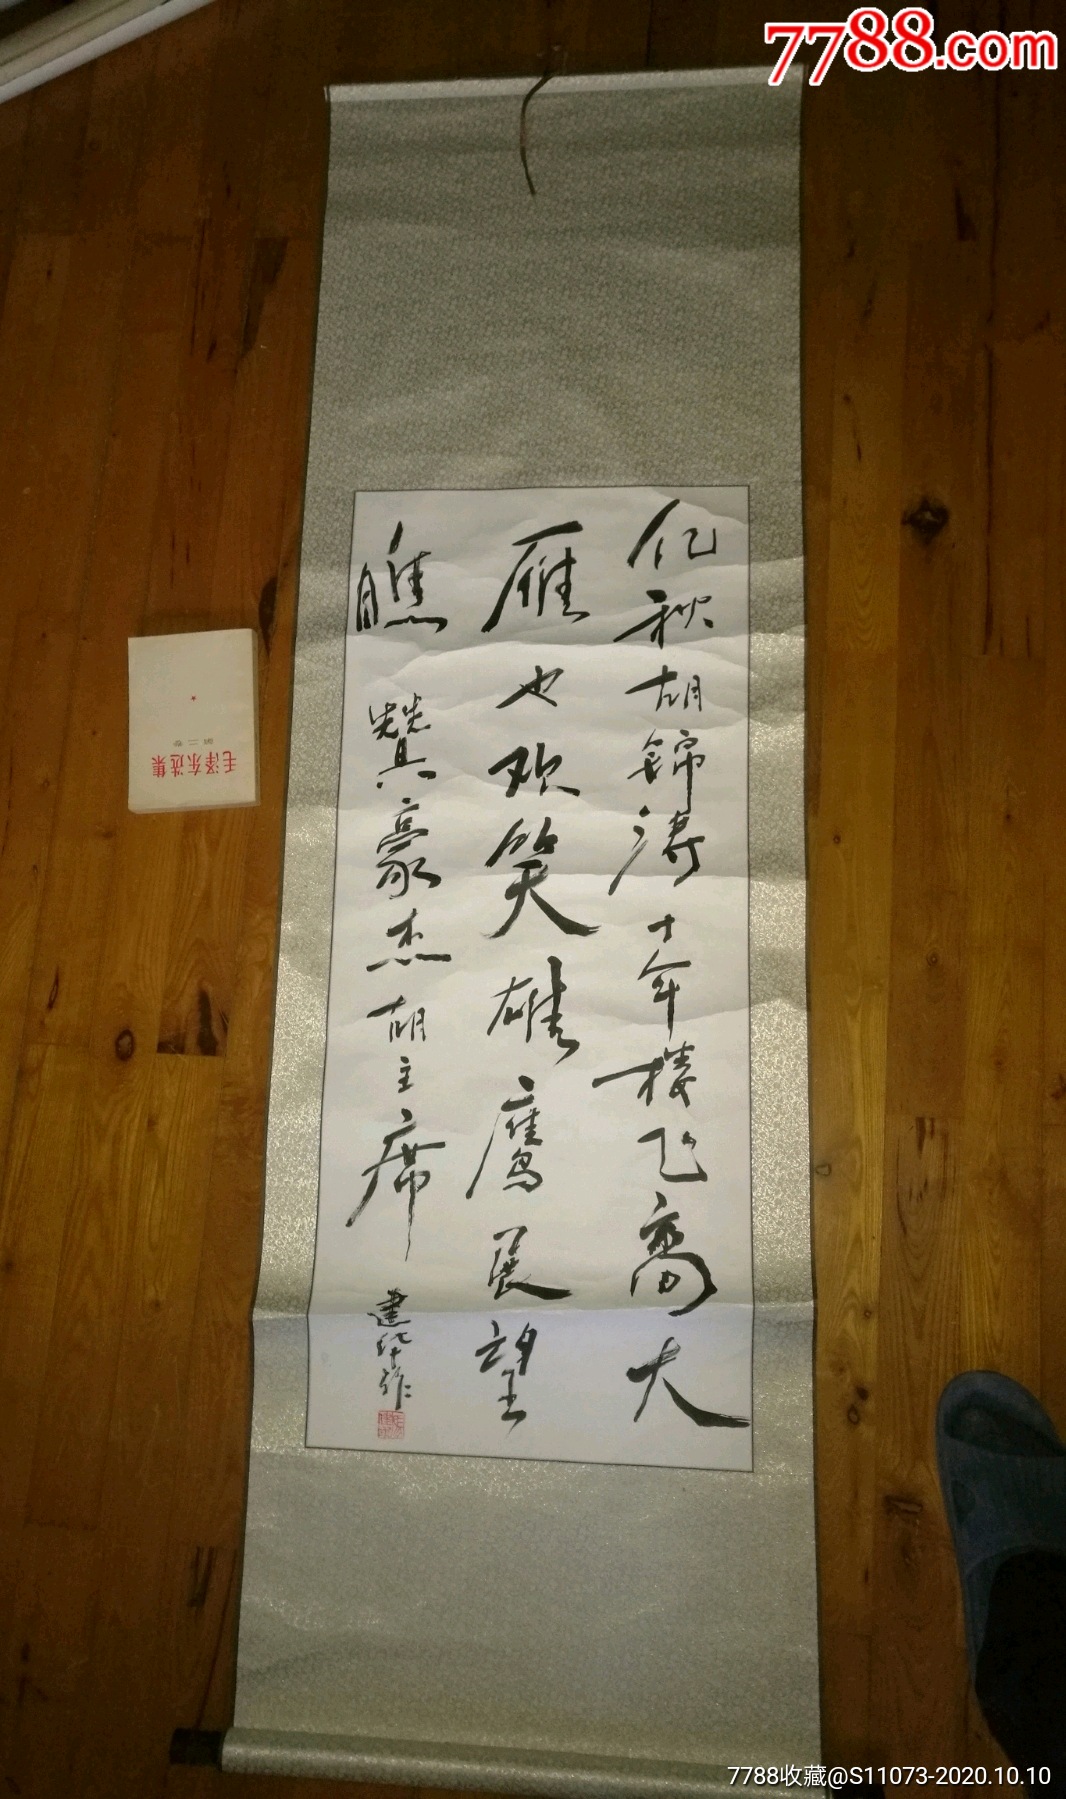 7788.com
亿秋胡锦涛十年楼飞高大
雁也欢笑雄鹰展望
瞧 赞豪杰胡主席
建华作
毛泽东选集
第二卷
7788收藏@S11073-2020.10.10